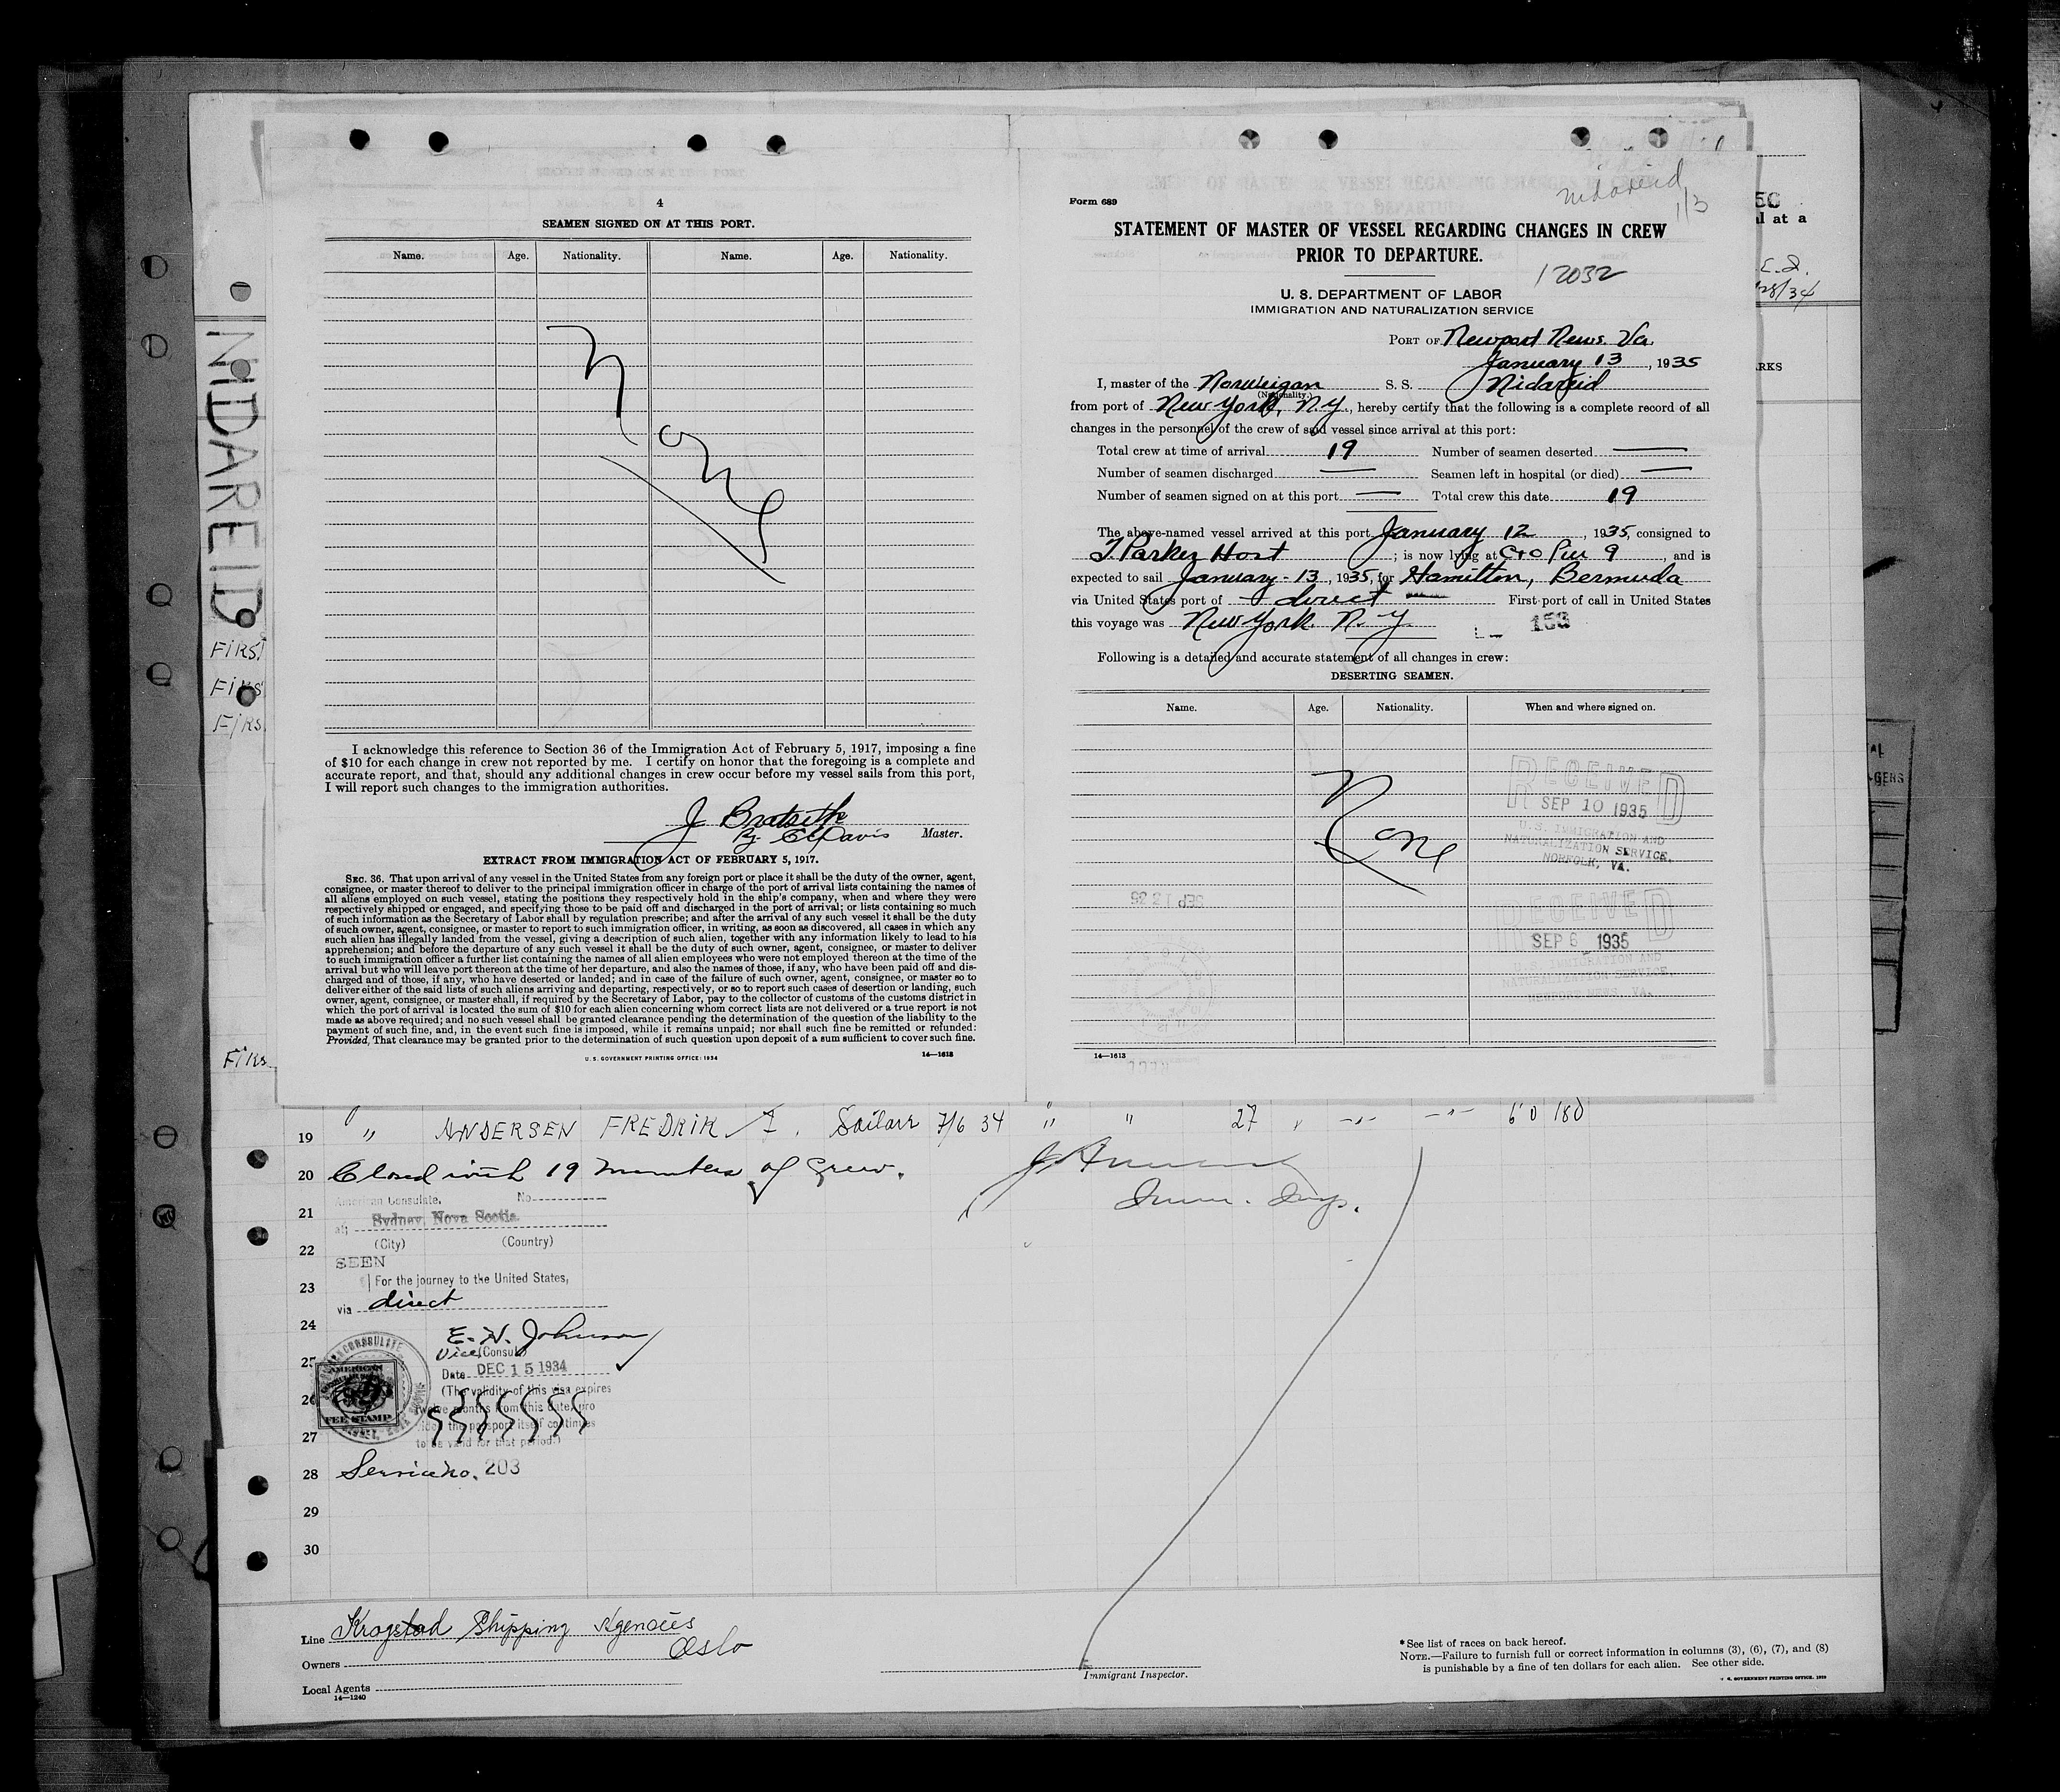 4
SEAMEN SIGNED ON AT THIS PORT.
Name. Age. Nationality. Name. Age. Nationality.
None
I acknowledge this reference to Section 36 of the Immigration Act of February 5, 1917, imposing a fine
of $10 for each change in crew not reported by me. I certify on honor that the foregoing is a complete and
accurate report, and that, should any additional changes in crew occur before my vessel sails from this port,
I will report such changes to the immigration authorities.
J Bratseth
By E C Davis Master.
EXTRACT FROM IMMIGRATION ACT OF FEBRUARY 5, 1917.
SEC. 36. That upon arrival of any vessel in the United States from any foreign port or place it shall be the duty of the owner, agent,
consignee, or master thereof to deliver to the principal immigration officer in charge of the port of arrival lists containing the names of
all aliens employed on such vessel, stating the positions they respectively hold in the ship's company, when and where they were
respectively shipped or engaged, and specifying those to be paid off and discharged in the port of arrival; or lists containing so much
of such information as the Secretary of Labor shall by regulation prescribe; and after the arrival of any such vessel it shall be the duty
of such owner, agent, consignee, or master to report to such immigration officer, in writing, as soon as discovered, all cases in which any
such alien has illegally landed from the vessel, giving a description of such alien, together with any information likely to lead to his
apprehension; and before the departure of any such vessel it shall be the duty of such owner, agent, consignee, or master to deliver
to such immigration officer a further list containing the names of all alien employees who were not employed thereon at the time of the
arrival but who will leave port thereon at the time of her departure, and also the names of those, if any, who have been paid off and dis-
charged and of those, if any, who have deserted or landed; and in case of the failure of such owner, agent, consignee, or master so to
deliver either of the said lists of such aliens arriving and departing, respectively, or so to report such cases of desertion or landing, such
owner, agent, consignee, or master shall, if required by the Secretary of Labor, pay to the collector of customs of the customs district in
which the port of arrival is located the sum of $10 for each alien concerning whom correct lists are not delivered or a true report is not
made as above required; and no such vessel shall be granted clearance pending the determination of the question of the liability to the
payment of such fine, and, in the event such fine is imposed, while it remains unpaid; nor shall such fine be remitted or refunded:
Provided, That clearance may be granted prior to the determination of such question upon deposit of a sum sufficient to cover such fine.
U. S. GOVERNMENT PRINTING OFFICE: 1934 14—1613
Nidareid
1/13
Form 689
STATEMENT OF MASTER OF VESSEL REGARDING CHANGES IN CREW
PRIOR TO DEPARTURE.
12032
U. S. DEPARTMENT OF LABOR
IMMIGRATION AND NATURALIZATION SERVICE
PORT OF Newport News. Va.
January 13, 1935
I, master of the Norweigan S. S. Nidareid
(Nationality.)
from port of New York, N.Y., hereby certify that the following is a complete record of all
changes in the personnel of the crew of said vessel since arrival at this port:
Total crew at time of arrival 19 Number of seamen deserted —
Number of seamen discharged — Seamen left in hospital (or died) —
Number of seamen signed on at this port — Total crew this date 19
The above-named vessel arrived at this port January 12, 1935, consigned to
T. Parker Host; is now lying at C+O Pier 9, and is
expected to sail January - 13, 1935, for Hamilton, Bermuda
via United States port of direct First port of call in United States
this voyage was New York N.Y
153
Following is a detailed and accurate statement of all changes in crew:
DESERTING SEAMEN.
Name. Age. Nationality. When and where signed on.
None
RECEIVED
SEP 10 1935
U.S. IMMIGRATION AND
NATURALIZATION SERVICE.
NORFOLK, VA.
RECEIVED
SEP 6 1935
U.S. IMMIGRATION AND
NATURALIZATION SERVICE,
NEWPORT NEWS, VA.
14—1613
NIDAREID
FIRST
FIRS
FIRS
FIRS
al at a
E.D.
28/34
RKS
GERS
19 " ANDERSEN FREDRIK Sailorr 7/6 34 " " 27 60 180
20 Closed with 19 members of Crew.
Imm. Insp.
American Consulate, No
21 at Sydney, Nova Scotia
22 (City) (Country)
SEEN
23 For the journey to the United States,
via direct
24
E. H. Johnson
25 Vice Consul
Date DEC 15 1934
(The validity of this visa expires
26 twelve months from this date, pro
vided the passport itself continues
27 to be valid for that period)
AMERICAN
FEE STAMP
28 Service no. 203
29
30
Line Krogstad Shipping Agencies
Oslo
Owners
Local Agents
14—1240
Immigrant Inspector.
* See list of races on back hereof.
NOTE.—Failure to furnish full or correct information in columns (3), (6), (7), and (8)
is punishable by a fine of ten dollars for each alien. See other side.